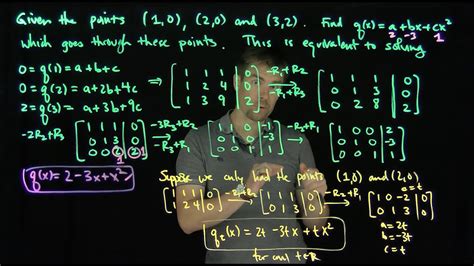 Given the points (1,0), (2,0) and (3,2). Find q(x) = a+bx+cx²
2 -3 1
which goes through these points. This is equivalent to solving
0 = q(1) = a+b+c
0 = q(2) = a+2b+4c
2 = q(3) = a+3b+9c
⇒ [1 1 1 | 0; 1 2 4 | 0; 1 3 9 | 2] -R₁+R₂ → -R₁+R₃ [1 1 1 | 0; 0 1 3 | 0; 0 2 8 | 2]
-2R₂+R₃ → [1 1 1 | 0; 0 1 3 | 0; 0 0 2 | 2] 1 1 -3R₃+R₂ → -R₃+R₁ [1 1 0 | -1; 0 1 0 | -3; 0 0 1 | 1] -R₂+R₁ → [1 0 0 | 2; 0 1 0 | -3; 0 0 1 | 1]
q(x) = 2-3x+x²
Suppose we only had the points (1,0) and (2,0)
c=t
[1 1 1 | 0; 1 2 4 | 0] -R₁+R₂ → [1 1 1 | 0; 0 1 3 | 0] -R₂+R₁ → [1 0 -2 | 0; 0 1 3 | 0]
a = 2t
b = -3t
c = t
qₜ(x) = 2t -3tx + tx²
for any t∈ℝ